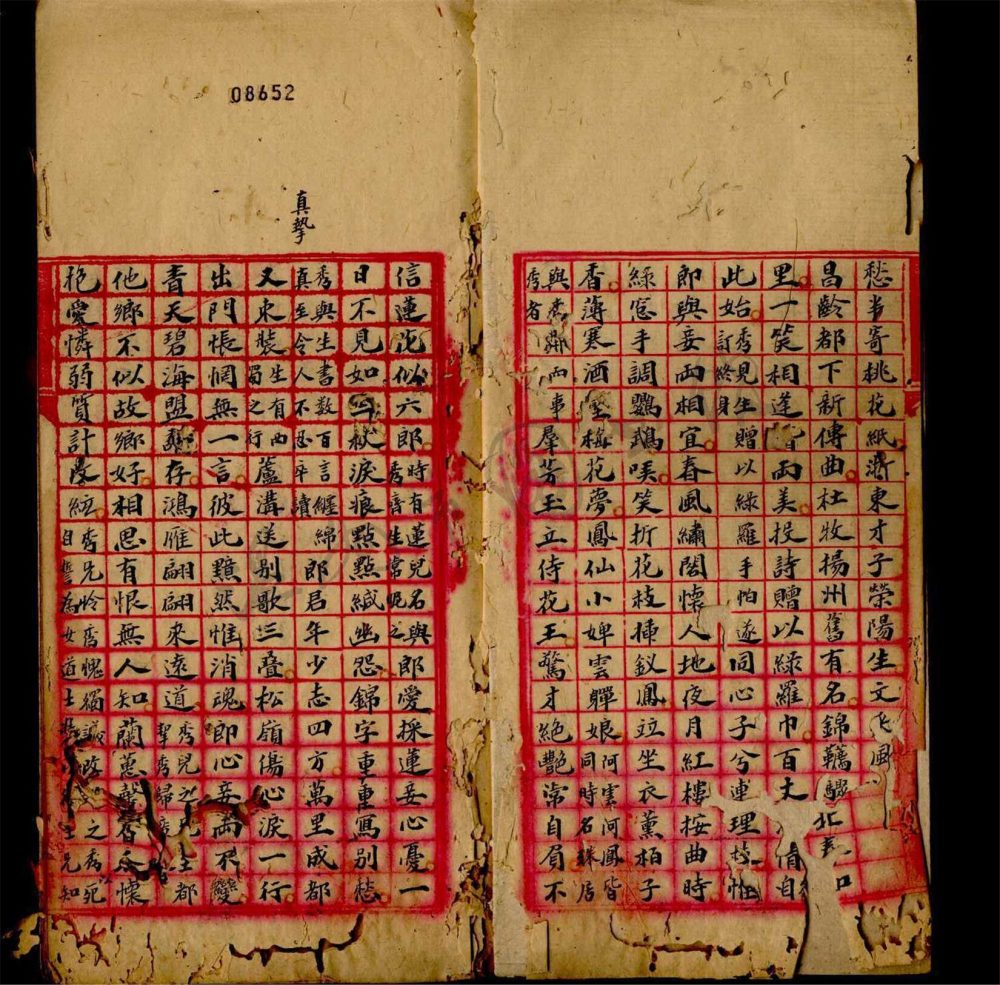 愁寄桃花紙浙東才子榮陽生文飛風
昌齡都下新傳曲杜牧揚州舊有名錦韉驟北
里一笑相逢皆兩美投詩贈以綠羅巾百丈情自
此始秀見生贈以綠羅手帕遂訂終身同心子兮連理枝性
郎與妾兩相宜春風繡閣懷人地夜月紅樓按曲時
綠窓手調鸚鵡嘆笑折花枝揷釵鳳並坐衣薰柏子
香薄寒酒壓梅花夢鳳仙小婢雲軃娘阿雲阿鳳皆同時名姝居
與秀者而事羣芳玉立侍花王驚才絕艷常自眉不
08652
真摯
信蓮花似六郎時有蓮兒名與秀音生常昵之郎愛採蓮妾心憂一
日不見如三秋淚痕點點緘幽怨錦字重重寫別愁
秀與生書数百言纏綿真至令人不忍卒讀郎君年少志四方萬里成都
又束裝生有西蜀之行蘆溝送別歌三叠松嶺傷心淚一行
出門悵惘無一言彼此黯然惟消魂即心妾兩不變
青天碧海盟誓存鴻雁翩翩來遠道秀兒之兄生都挈秀歸
他鄉不似故鄉好相思有恨無人知蘭蕙馨香懷
抱愛憐弱質計秀兄怜秀愧獨之秀死自誓為女道士兄知